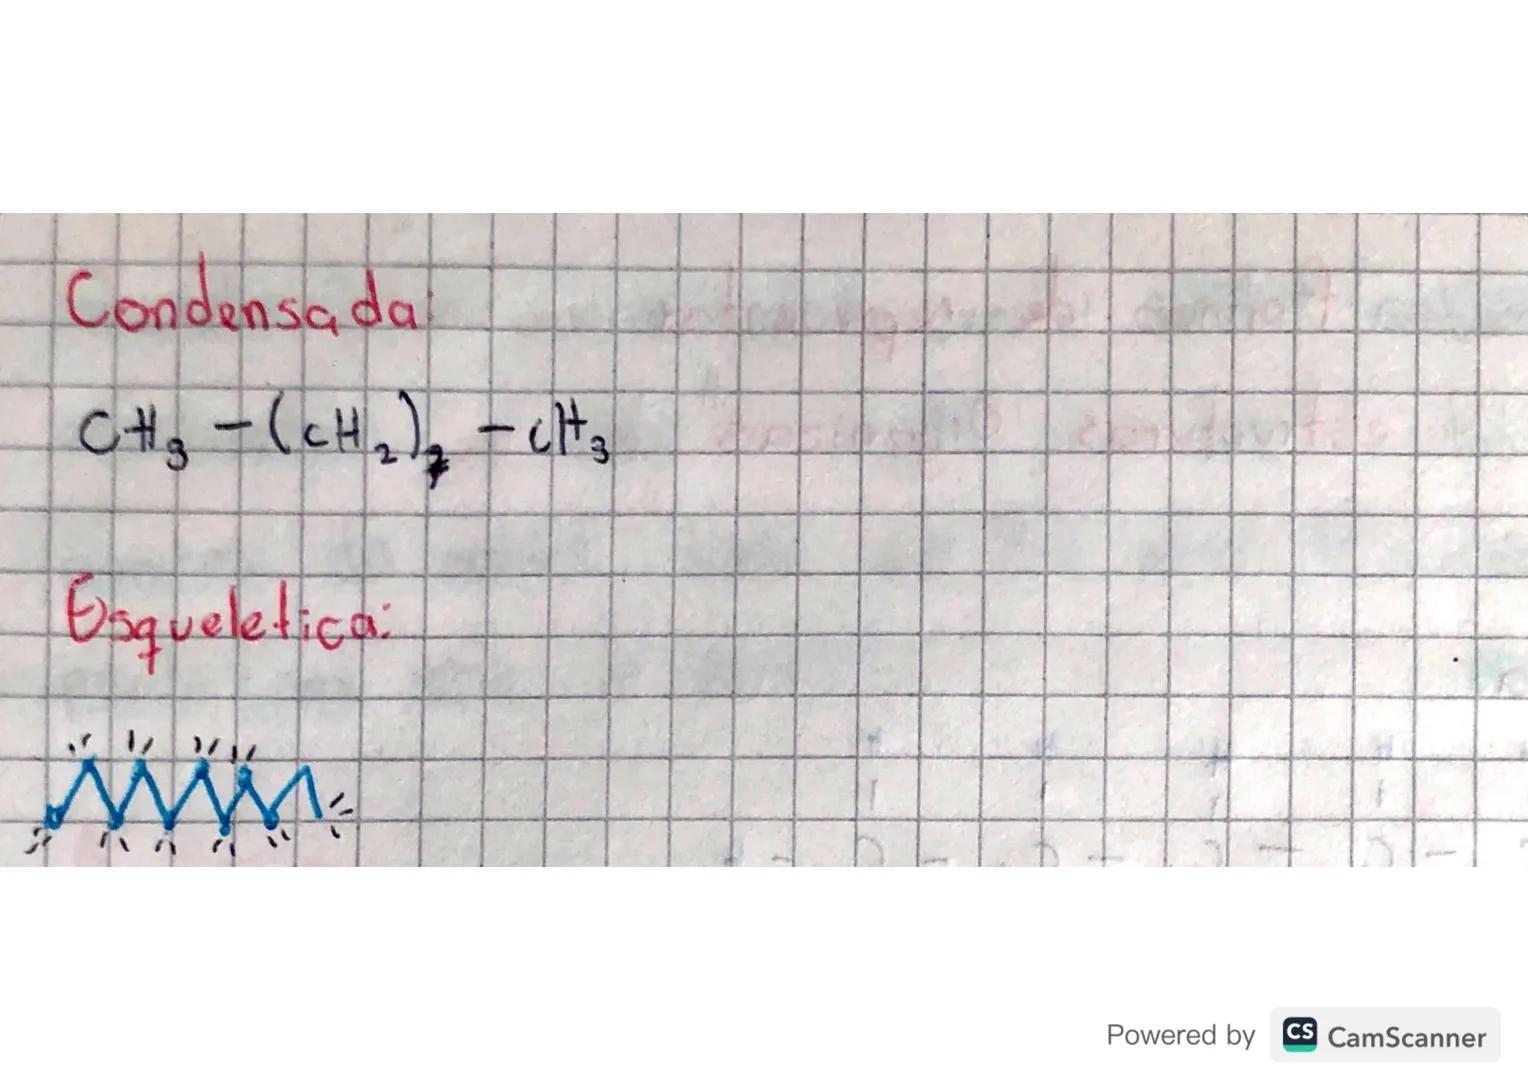 Condensada:
CH₃ – (CH₂)₇ – CH₃
Esqueletica:
Powered by CS CamScanner